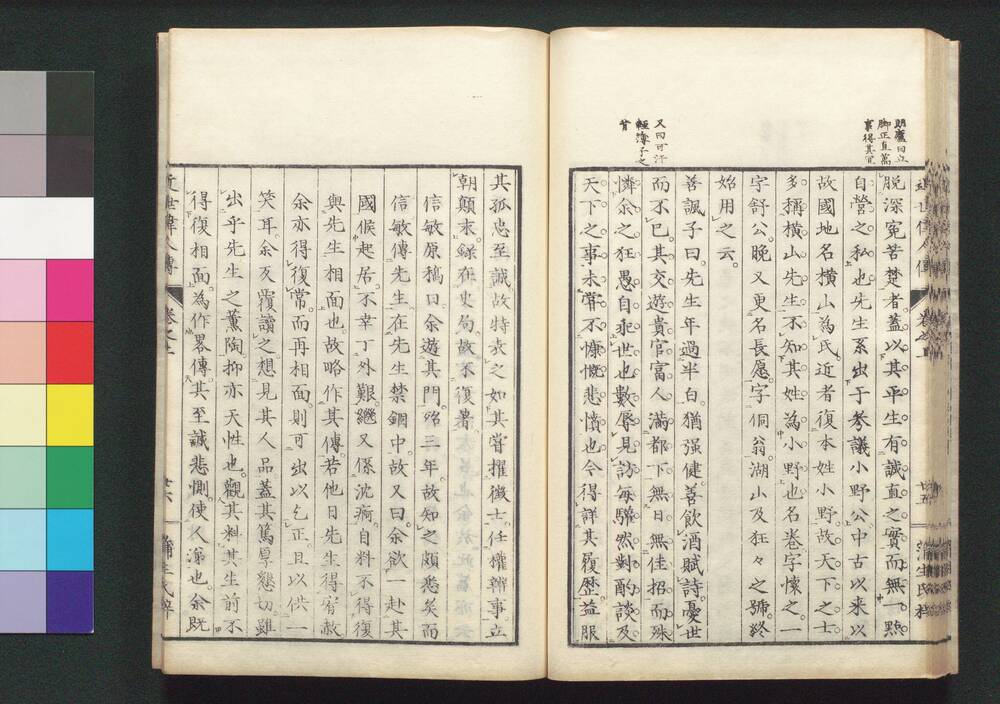 朗廬曰立
脚正直萬
事得其宜
脱深冤苦楚者蓋以其平生有誠直之實而無一點
自營之私也先生系出于參議小野公中古以來以
故國地名橫山為氏近者復本姓小野故天下之士
多稱橫山先生不知其姓為小野也名卷字懷之一
字舒公晩又更名長愿字侗翁湖山及狂々之號終
始用之云
又曰可汗
輕薄子之
背
善諷子曰先生年過半白猶强健善飲酒賦詩憂世
而不已其交遊貴官富人滿都下無日無佳招而殊
憐余之狂愚自乖世也數辱見訪每驩然對酌談及
天下之事未嘗不慷慨悲憤也今得詳其履歷益服
近世偉人傳 卷之 廿五 蒲生氏梓
其孤忠至誠故特表之如其嘗擢徵士任權辨事立
朝顛末錄在史局故不復著
信敏原稿曰余遊其門殆三年故知之頗悉矣而
信敏傳先生在先生禁錮中故又曰余欲一赴其
國候起居不幸丁外艱繼又係沈痾自料不得復
與先生相面也故略作其傳若他日先生得宥赦
余亦得復常而再相面則可出以乞正且以供一
笑耳余反覆讀之想見其人品蓋其篤厚懇切雖
出乎先生之薰陶抑亦天性也觀其料其生前不
得復相面為作畧傳其至誠悲惻使人潸也余既
近世偉人傳 卷之 廿六 蒲生氏梓